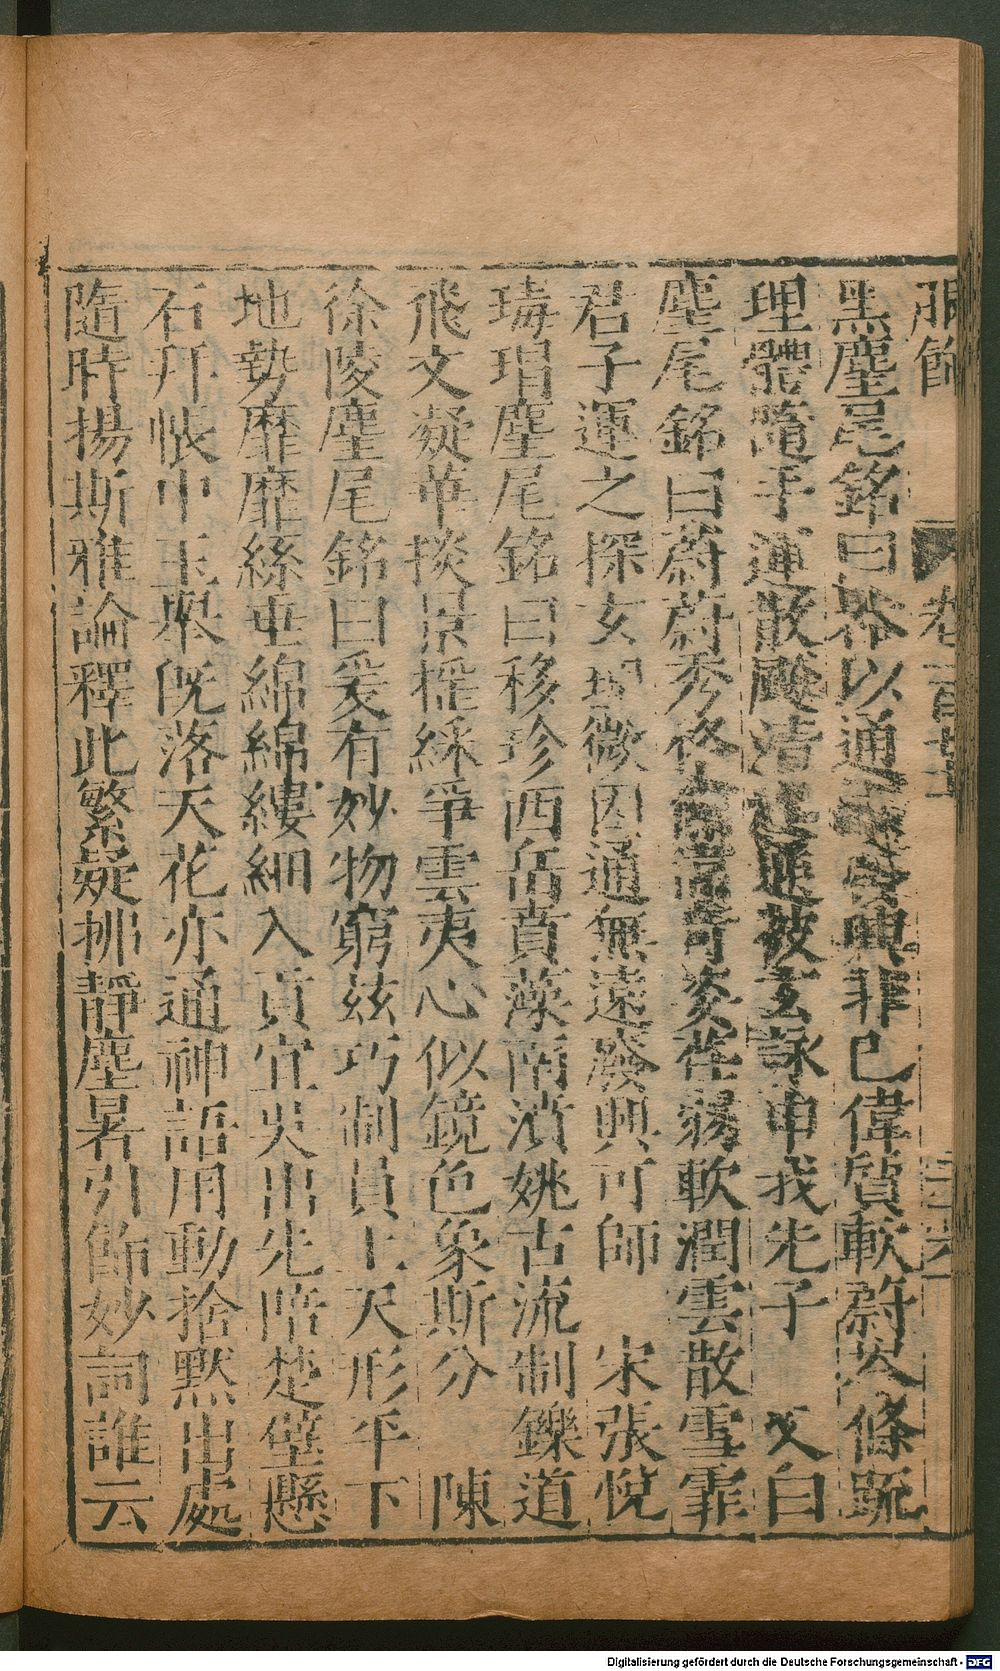 服飾 卷一百
黑麈尾銘曰 以通 興非已偉質軟蔚岑條疏
理體隨手運散飈清 遐被玄詠申我先子 又白
麈尾銘曰蔚蔚秀 奇姿荏蒻軟潤雲散雪霏
君子運之探玄 微因通無遠廢興可師 宋張悅
瑇瑁麈尾銘曰移珍西岳賁藻南濱姚古流制鑠道
飛文凝華掞景摇綵爭雲夷心似鏡色象斯分 陳
徐陵麈尾銘曰爰有妙物窮兹巧制員上天形平下
地勢靡靡絲垂綿綿縷細入貢宜吳出先陪楚壁懸
石拜帳中玉舉既落天花亦通神語用動捨默出處
隨時揚斯雅論釋此繁疑拂靜塵暑引飾妙詞誰云
Digitalisierung gefördert durch die Deutsche Forschungsgemeinschaft - DFG